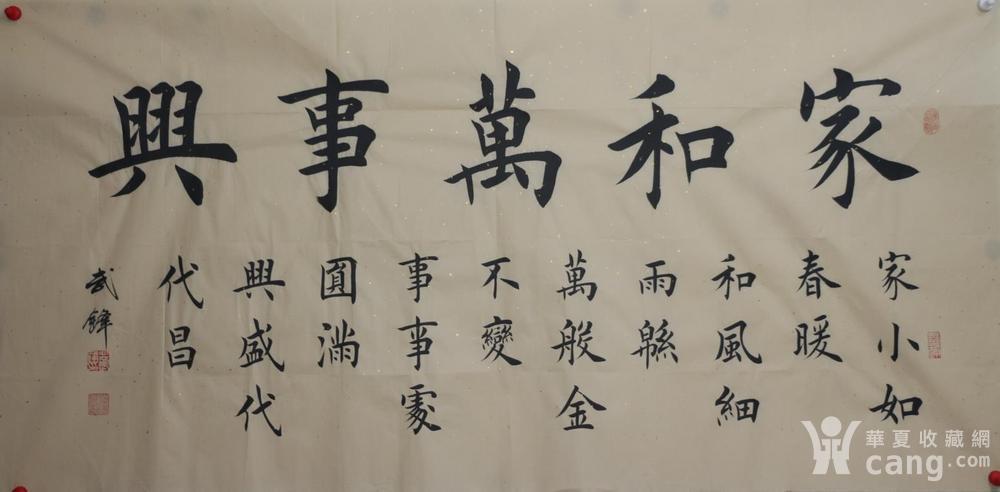 家和萬事興
家小如
春暖
和風細
雨緜
萬般金
不變
事事處
圓滿
興盛代
代昌
武鋒
華夏收藏網
cang.com